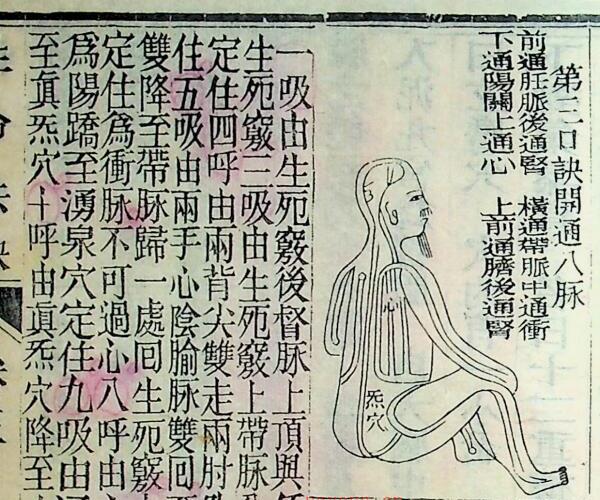 第三口訣開通八脉
前通任脈後通腎　橫通帶脈中通衝
下通陽關上通心　上前通臍後通腎
心
炁穴
一吸由生死竅後督脉上頂與
生死竅三吸由生死竅上帶脉
定住四呼由兩背尖雙走兩肘
住五吸由兩手心陰腧脉雙回
雙降至帶脉歸一處回生死竅
定住為衝脉不可過心八呼由
為陽蹻至湧泉穴定住九吸由
至眞炁穴十呼由眞炁穴降至